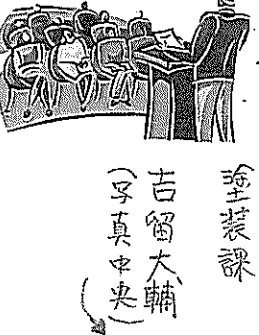 塗装課
吉留大輔
(写真中央)